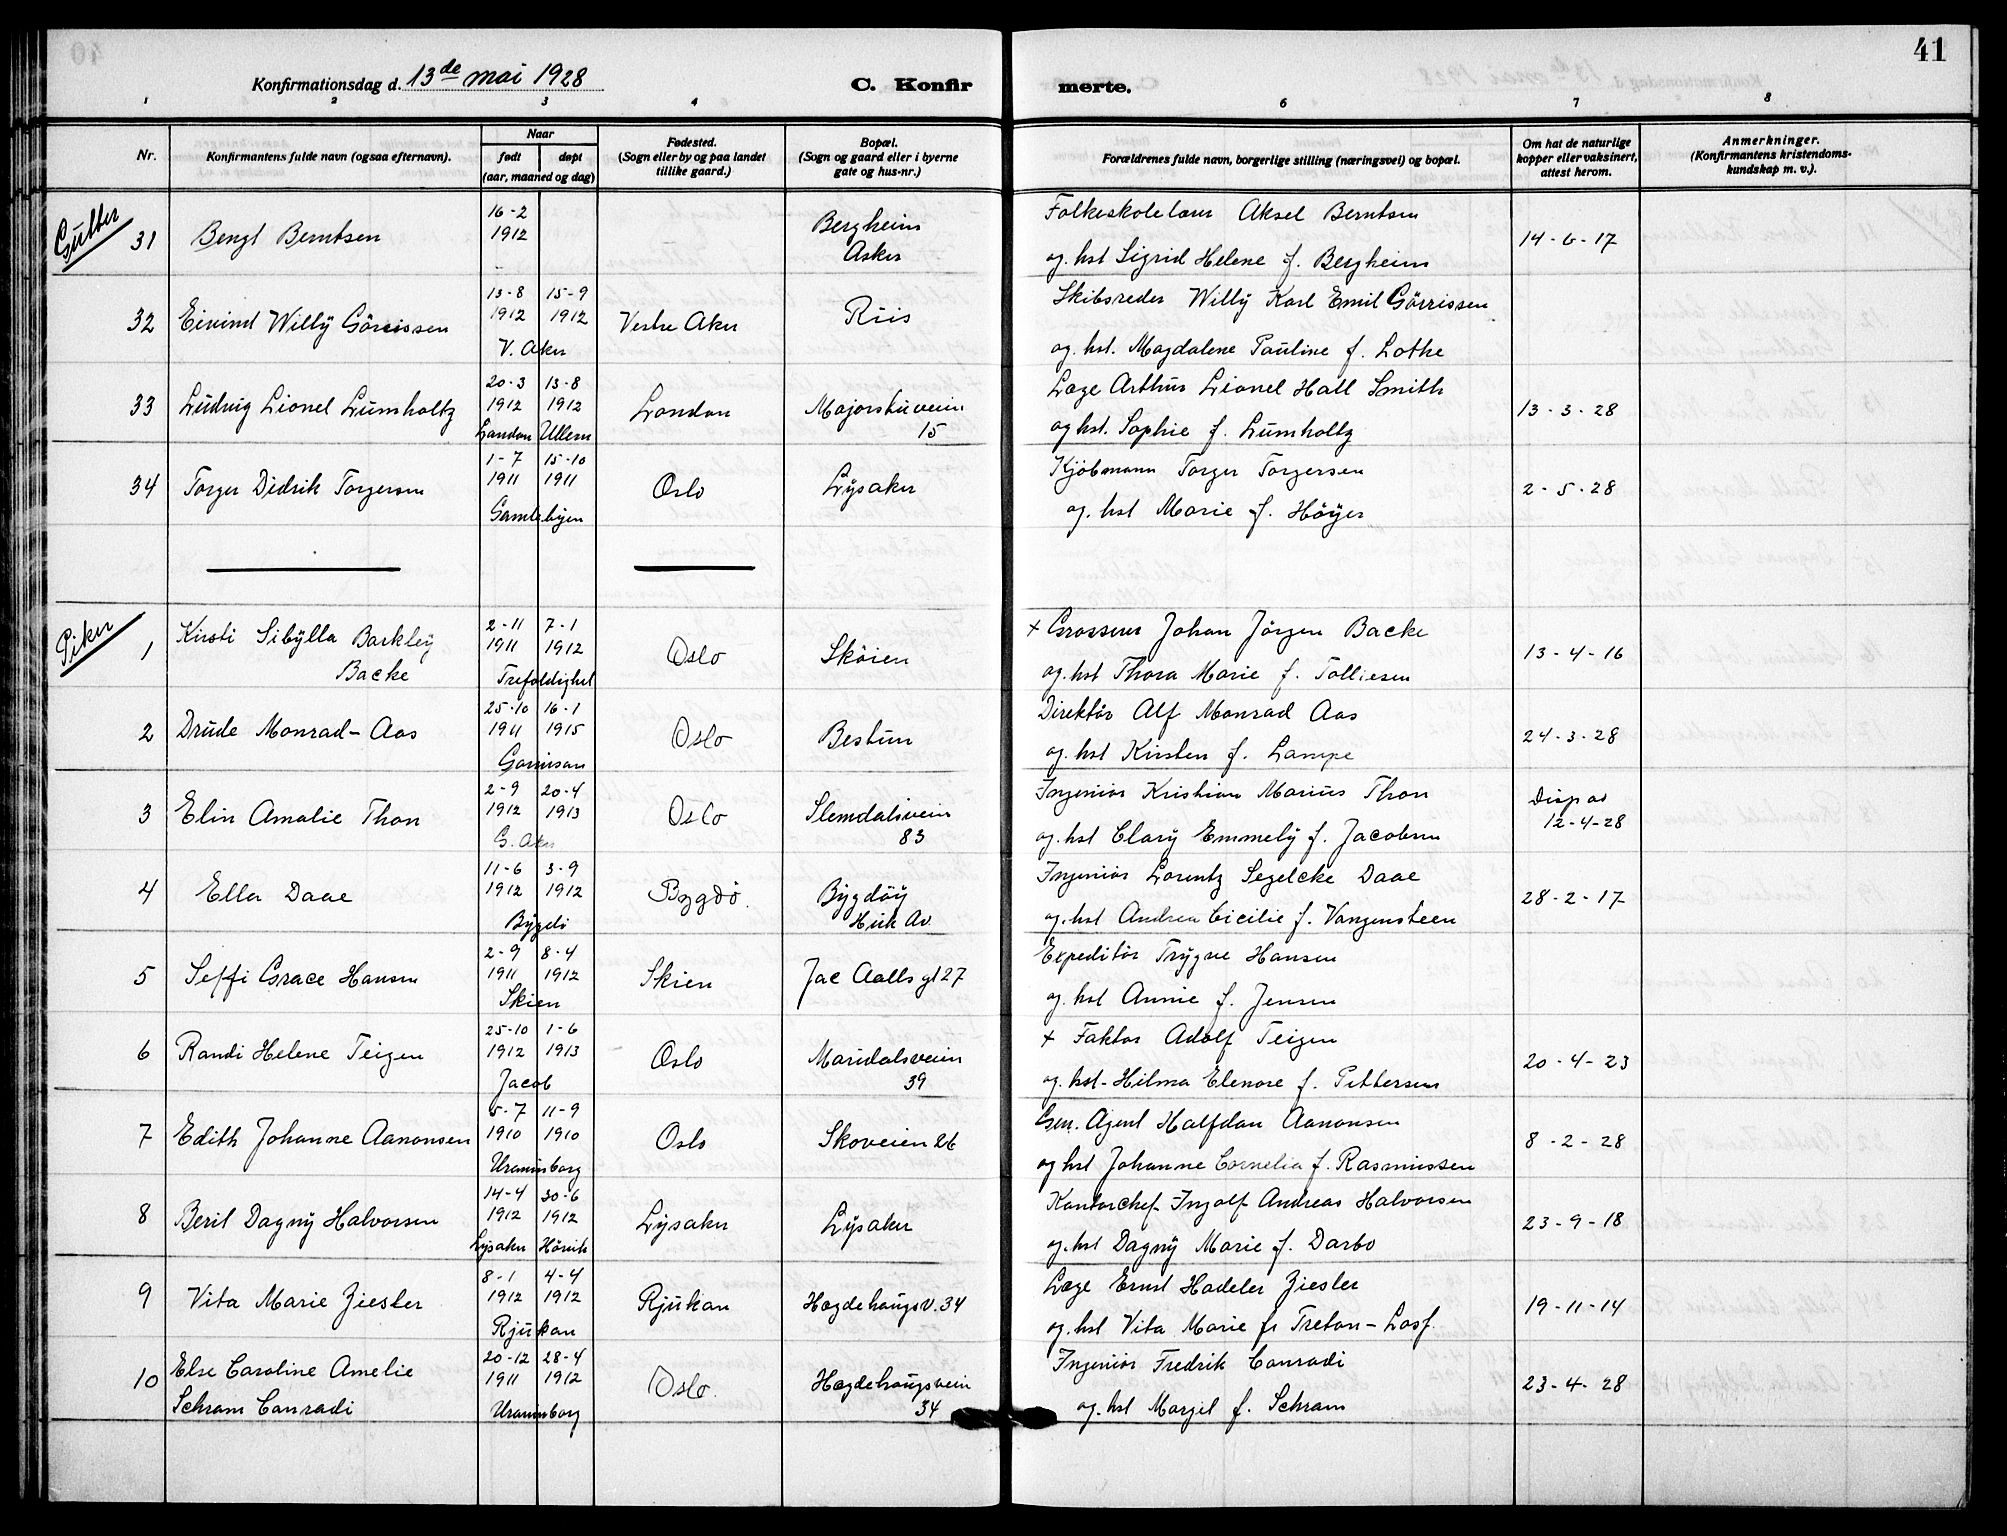 41
Konfirmationsdag d. 13de mai 1928
C. Konfir
merte.
1 2 3 4 6 7 8
Nr.
Konfirmantens fulde navn (ogsaa efternavn).
Naar
født døpt
(aar, maaned og dag)
Fødested.
(Sogn eller by og paa landet
tillike gaard.)
Bopæl.
(Sogn og gaard eller i byerne
gate og hus-nr.)
Forældrenes fulde navn, borgerlige stilling (næringsvei) og bopæl.
Om hat de naturlige
kopper eller vaksinert,
attest herom.
Anmerkninger.
(Konfirmantens kristendoms-
kundskap m. v.).
Gutter
31 Bengt Berntsen
16-2
1912
Bergheim
Asker
Folkeskolelærer Aksel Berntsen
og. hst Sigrid Helene f. Bergheim
14-6-17
32 Eivind Willy Görrissen
13-8 15-9
1912 1912
V. Aker
Vestre Aker
Riis
Skibsreder Willy Karl Emil Görrissen
og. hst. Magdalene Pauline f. Lothe
33 Ludvig Lionel Lumholtz
20-3 13-8
1912 1912
London Ullern
London
Majorstuveien
15
Læge Arthur Lionel Hall Smith
og hst. Sophie f. Lumholtz
13-3-28
34 Torger Didrik Torgersen
1-7 15-10
1911 1911
Gamlebyen
Oslo
Lysaker
Kjöbmann Torger Torgersen
og. hst Marie f. Höyer
2-5-28
Piker
1 Kirsti Sibylla Barkley
Backe
2-11 7-1
1911 1912
Trefoldighet
Oslo
Sköien
+ Grosserer Johan Jörgen Backe
og. hst Thora Marie f. Tolliesen
13-4-16
2 Drude Monrad-Aas
25-10 16-1
1911 1915
Garnison
Oslo
Bestum
Direktör Alf Monrad Aas
og. hst Kirsten f. Lampe
24-3-28
3 Elin Amalie Thon
2-9 20-4
1912 1913
G. Aker
Oslo
Slemdalsveien
83
Ingeniör Kristian Marius Thon
og. hst Clary Emmely f. Jacobsen
Disp av
12-4-28
4 Ella Daae
11-6 3-9
1912 1912
Bygdö
Bygdö.
Bygdöy
Huk Av.
Ingeniör Lorentz Segelcke Daae
og. hst Andrea Cicilie f. Vangensteen
28-2-17
5 Seffi Grace Hansen
2-9 8-4
1911 1912
Skien
Skien
Jac Aalls gt 27
Expeditör Trygve Hansen
og. hst Annie f. Jensen
6 Randi Helene Teigen
25-10 1-6
1912 1913
Jacob
Oslo
Maridalsveien
39
+ Faktor Adolf Teigen
og. hst- Hilma Elenore f. Pettersen
20-4-23
7 Edith Johanne Aanonsen
5-7 11-9
1910 1910
Uranienborg
Oslo
Skoveien 26
Gen. Agent Halfdan Aanonsen
og hst Johanne Cornelia f. Rasmussen
8-2-28
8 Beril Dagny Halvorsen
14-4 30-6
1912 1912
Lysaker Hövik
Lysaker
Lysaker
Kontorchef Ingolf Andreas Halvorsen
og. hst Dagny Marie f. Darbo
23-9-18
9 Vita Marie Ziesler
8-1 4-4
1912 1912
Rjukan
Rjukan
Hægdehaugsv. 34
Læge Ernst Hadeler Ziesler
og. hst Vita Marie f.
19-11-14
10 Else Caroline Amelie
Schram Conradi
20-12 28-4
1911 1912
Uranienborg
Oslo.
Hægdehaugsveien
34
Ingeniör Fredrik Conradi
og. hst Margit f. Schram
23-4-28